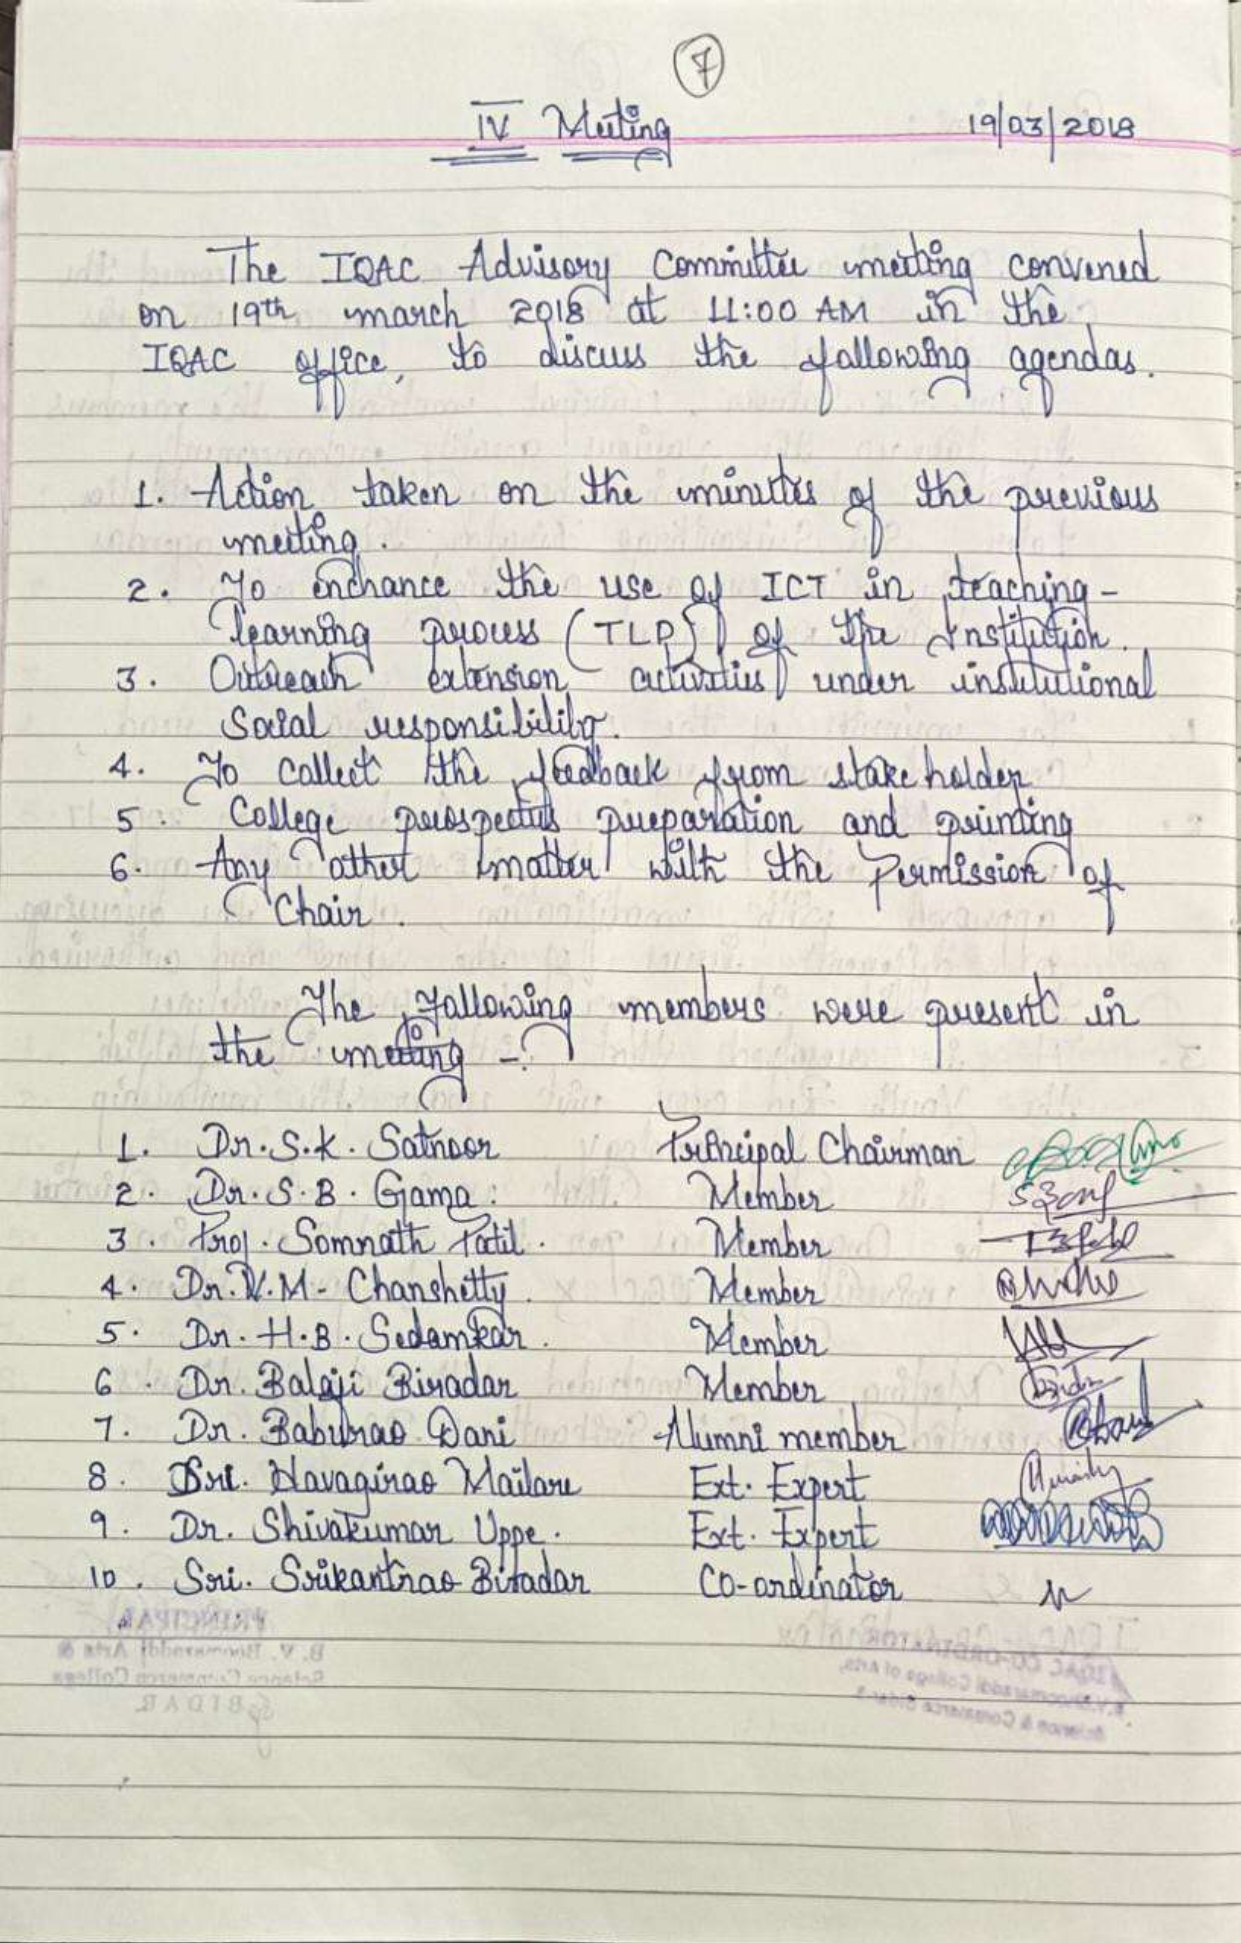 7
IV Meeting 19/03/2018
The IQAC Advisory Committee meeting convened
on 19th march 2018 at 11:00 AM in the
IQAC office, to discuss the following agendas.
1. Action taken on the minutes of the previous
meeting.
2. To enchance the use of ICT in teaching-
learning process (TLP) of the Institution.
3. Outreach extension activities under institutional
Social responsibility.
4. To collect the feedback from stake holder
5. College prospectus preparation and printing
6. Any other matter with the Permission of
Chair.
The following members were present in
the meeting -
1. Dr. S.K. Satnoor Principal Chairman
2. Dr. S. B. Gama. Member
3. Prof. Somnath Patil. Member
4. Dr. V. M. Chanshetty Member
5. Dr. H. B. Sedamkar. Member
6. Dr. Balaji Biradar Member
7. Dr. Baburao Dani Alumni member
8. Sri. Havagirao Mailare Ext. Expert
9. Dr. Shivakumar Uppe. Ext. Expert
10. Sri. Srikantrao Biradar Co-ordinator